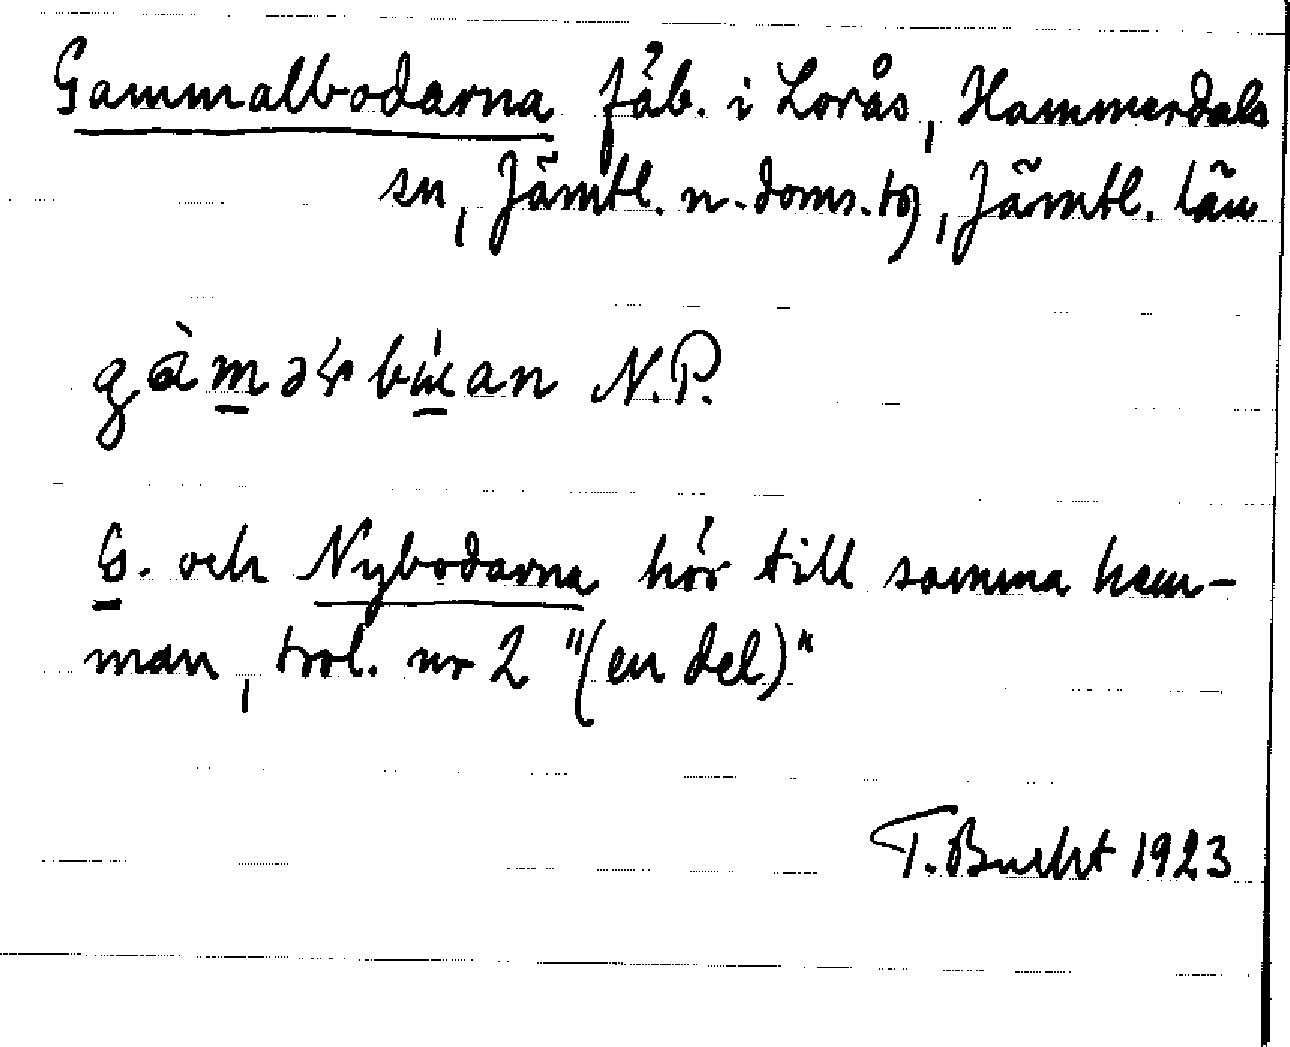 Gammalbodarna fäb. i Lorås, Hammerdals
sn, Jämtl. n. doms.tg, Jämtl. län
N.P.
G. och Nybodarna hör till samma hem-
man, trol. nr 2 "(en del)"
T. Bucht 1923